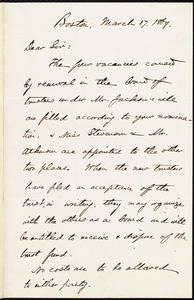 Boston, March 17. 1867.
Dear Sir:
The four vacancies caused
by removal in the board of
trustees under Mr. Jackson's will
are filled according to your nomina-
tion, & Miss Stevenson & Mr.
Atkinson are appointed to the other
two places. When the new trustees
have filed an acceptance of the
trust, in writing, they may organize
with the others as a board and will
be entitled to receive & dispose of the
trust fund.
No costs are to be allowed
to either party.